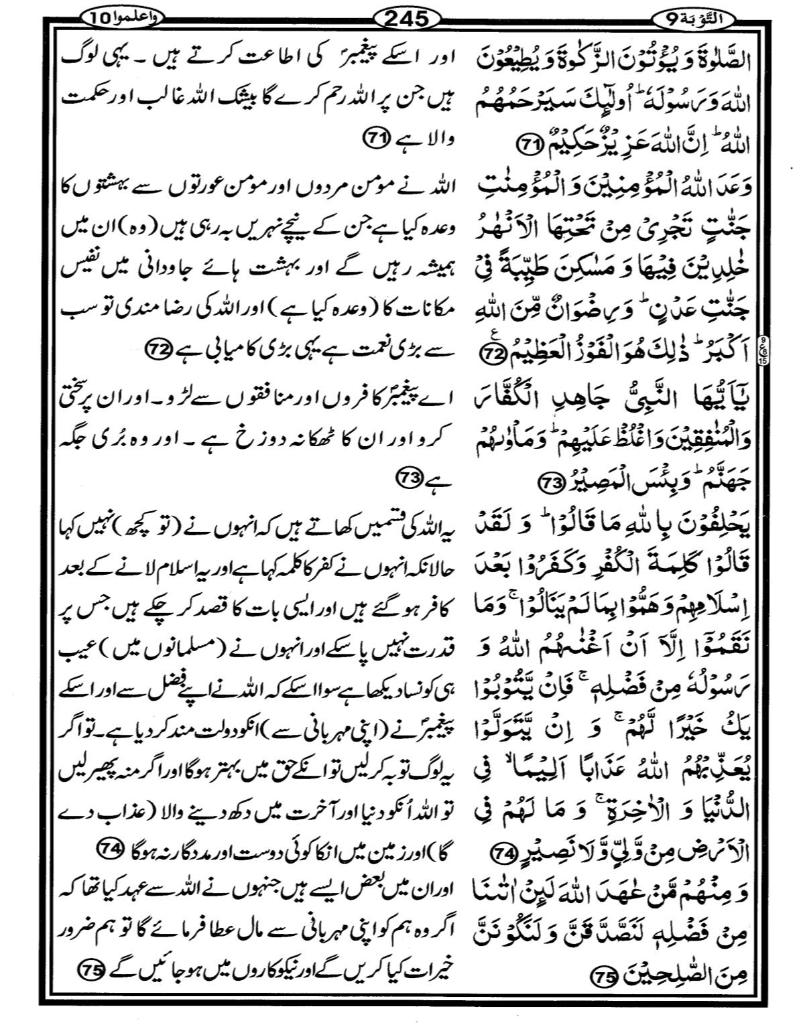 التَّوْبَة 9
245
واعلموا 10
الصَّلٰوةَ وَيُؤْتُوْنَ الزَّكٰوةَ وَيُطِيْعُوْنَ
اللّٰهَ وَرَسُوْلَهٗ ؕ اُولٰٓئِكَ سَيَرْحَمُهُمُ
اللّٰهُ ؕ اِنَّ اللّٰهَ عَزِيْزٌ حَكِيْمٌ 71
وَعَدَ اللّٰهُ الْمُؤْمِنِيْنَ وَالْمُؤْمِنٰتِ
جَنّٰتٍ تَجْرِيْ مِنْ تَحْتِهَا الْاَنْهٰرُ
خٰلِدِيْنَ فِيْهَا وَ مَسٰكِنَ طَيِّبَةً فِيْ
جَنّٰتِ عَدْنٍ ؕ وَرِضْوَانٌ مِّنَ اللّٰهِ
اَكْبَرُ ؕ ذٰلِكَ هُوَ الْفَوْزُ الْعَظِيْمُ 72 ع
يٰۤاَيُّهَا النَّبِيُّ جَاهِدِ الْكُفَّارَ
وَالْمُنٰفِقِيْنَ وَاغْلُظْ عَلَيْهِمْ ؕ وَمَاْوٰىهُمْ
جَهَنَّمُ ؕ وَبِئْسَ الْمَصِيْرُ 73
يَحْلِفُوْنَ بِاللّٰهِ مَا قَالُوْا ؕ وَ لَقَدْ
قَالُوْا كَلِمَةَ الْكُفْرِ وَكَفَرُوْا بَعْدَ
اِسْلَامِهِمْ وَهَمُّوْا بِمَا لَمْ يَنَالُوْا ۚ وَمَا
نَقَمُوْۤا اِلَّاۤ اَنْ اَغْنٰىهُمُ اللّٰهُ وَ
رَسُوْلُهٗ مِنْ فَضْلِهٖ ۚ فَاِنْ يَّتُوْبُوْا
يَكُ خَيْرًا لَّهُمْ ۚ وَ اِنْ يَّتَوَلَّوْا
يُعَذِّبْهُمُ اللّٰهُ عَذَابًا اَلِيْمًا ۙ فِي
الدُّنْيَا وَ الْاٰخِرَةِ ۚ وَ مَا لَهُمْ فِي
الْاَرْضِ مِنْ وَّلِيٍّ وَّلَا نَصِيْرٍ 74
وَ مِنْهُمْ مَّنْ عٰهَدَ اللّٰهَ لَئِنْ اٰتٰىنَا
مِنْ فَضْلِهٖ لَنَصَّدَّقَنَّ وَ لَنَكُوْنَنَّ
مِنَ الصّٰلِحِيْنَ 75
اور اسکے پیغمبرؐ کی اطاعت کرتے ہیں ۔ یہی لوگ
ہیں جن پر اللہ رحم کرے گا بیشک اللہ غالب اور حکمت
والا ہے 71
اللہ نے مومن مردوں اور مومن عورتوں سے بہشتوں کا
وعدہ کیا ہے جن کے نیچے نہریں بہ رہی ہیں (وہ) ان میں
ہمیشہ رہیں گے اور بہشت ہائے جاودانی میں نفیس
مکانات کا (وعدہ کیا ہے) اور اللہ کی رضا مندی تو سب
سے بڑی نعمت ہے یہی بڑی کامیابی ہے 72
اے پیغمبرؐ کافروں اور منافقوں سے لڑو۔ اور ان پر سختی
کرو اور ان کا ٹھکانہ دوزخ ہے ۔ اور وہ بُری جگہ
ہے 73
یہ اللہ کی قسمیں کھاتے ہیں کہ انہوں نے (تو کچھ) نہیں کہا
حالانکہ انہوں نے کفر کا کلمہ کہا ہے اور یہ اسلام لانے کے بعد
کافر ہو گئے ہیں اور ایسی بات کا قصد کر چکے ہیں جس پر
قدرت نہیں پا سکے اور انہوں نے (مسلمانوں میں) عیب
ہی کونسا دیکھا ہے سوا اسکے کہ اللہ نے اپنے فضل سے اور اسکے
پیغمبرؐ نے (اپنی مہربانی سے) انکو دولت مند کر دیا ہے۔ تو اگر
یہ لوگ توبہ کر لیں تو انکے حق میں بہتر ہو گا اور اگر منہ پھیر لیں
تو اللہ اُنکو دنیا اور آخرت میں دکھ دینے والا (عذاب دے
گا) اور زمین میں انکا کوئی دوست اور مددگار نہ ہو گا 74
اور ان میں بعض ایسے ہیں جنہوں نے اللہ سے عہد کیا تھا کہ
اگر وہ ہم کو اپنی مہربانی سے مال عطا فرمائے گا تو ہم ضرور
خیرات کیا کریں گے اور نیکوکاروں میں ہو جائیں گے 75